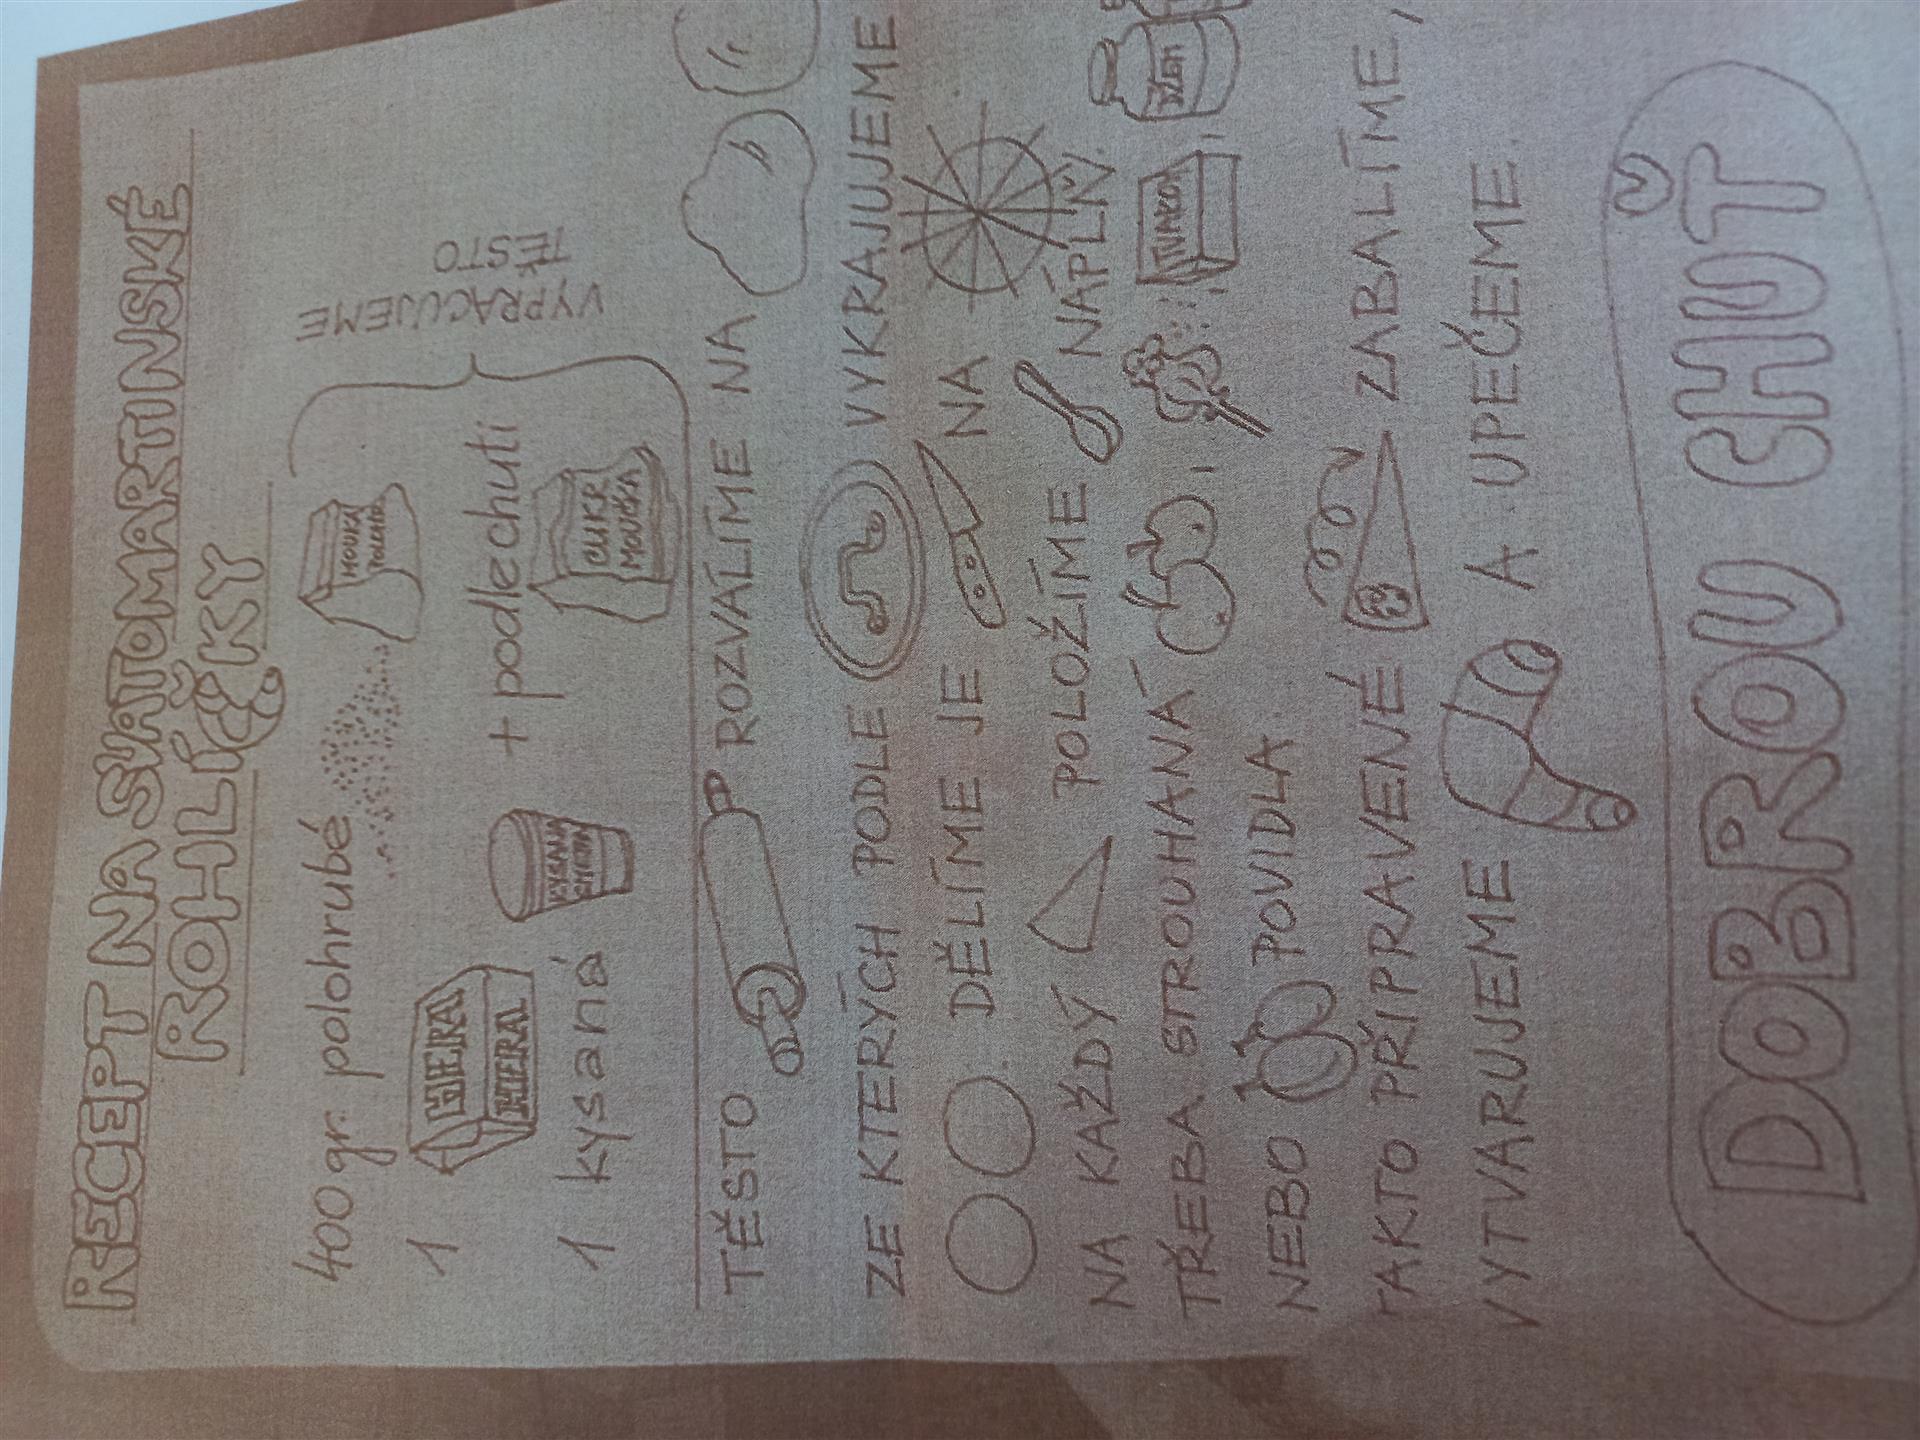 RECEPT NA SVATOMARTINSKÉ
ROHLÍČKY
400 gr. polohrubé MOUKA
1 HERA
HERA
1 kysaná KYSANÁ SMETANA + podlechuti CUKR MOUČKA
VYPRACUJEME
TĚSTO
TĚSTO ROZVÁLÍME NA
ZE KTERÝCH PODLE VYKRAJUJEME
DĚLÍME JE NA
NA KAŽDÝ POLOŽÍME NÁPLŇ.
TŘEBA STROUHANÁ , TVAROH , DŽEM
NEBO POVIDLA.
TAKTO PŘIPRAVENÉ ZABALÍME,
VYTVARUJEME A UPEČEME.
DOBROU CHUŤ